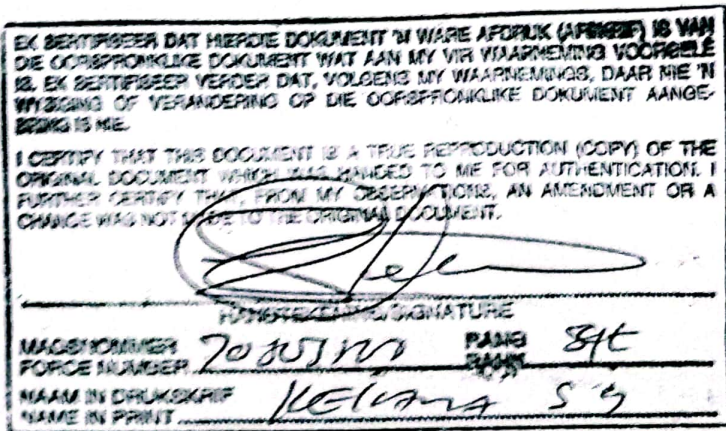 EK SERTIFISEER DAT HIERDIE DOKUMENT 'N WARE AFDRUK (AFSKRIF) IS VAN
DIE OORSPRONKLIKE DOKUMENT WAT AAN MY VIR WAARNEMING VOORGELÊ
IS. EK SERTIFISEER VERDER DAT, VOLGENS MY WAARNEMINGS, DAAR NIE 'N
WYSIGING OF VERANDERING OP DIE OORSPRONKLIKE DOKUMENT AANGE-
BRING IS NIE.
I CERTIFY THAT THIS DOCUMENT IS A TRUE REPRODUCTION (COPY) OF THE
ORIGINAL DOCUMENT WHICH WAS HANDED TO ME FOR AUTHENTICATION. I
FURTHER CERTIFY THAT, FROM MY OBSERVATIONS, AN AMENDMENT OR A
CHANGE WAS NOT MADE TO THE ORIGINAL DOCUMENT.
HANDTEKENING/SIGNATURE
MAGSNOMMER RANG
FORCE NUMBER RANK Sgt
NAAM IN DRUKSKRIF
NAME IN PRINT KEKANA S